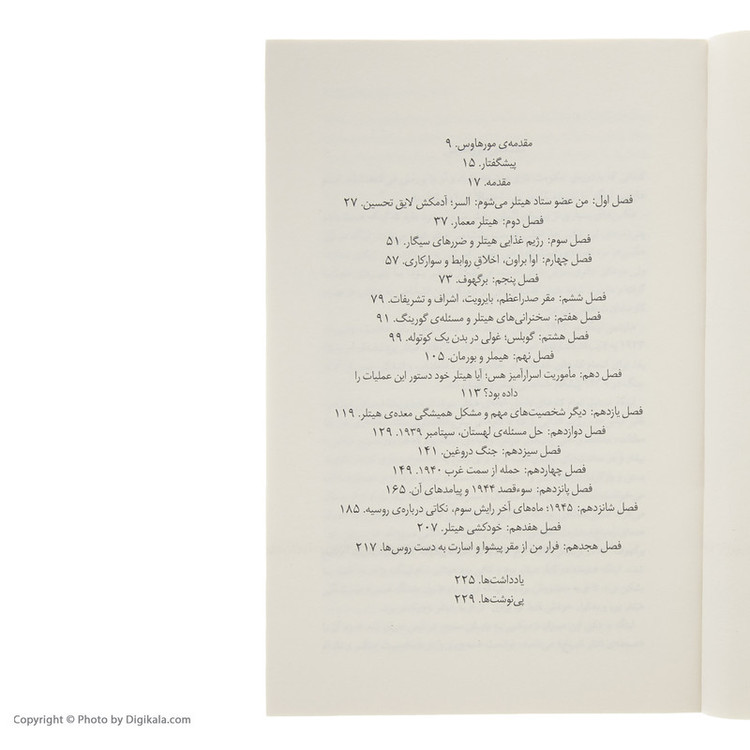 مقدمه‌ی مورهاوس. ۹
پیشگفتار. ۱۵
مقدمه. ۱۷
فصل اول: من عضو ستاد هیتلر می‌شوم: السر؛ آدمکش لایق تحسین. ۲۷
فصل دوم: هیتلر معمار. ۳۷
فصل سوم: رژیم غذایی هیتلر و ضررهای سیگار. ۵۱
فصل چهارم: اوا براون، اخلاقِ روابط و سوارکاری. ۵۷
فصل پنجم: برگهوف. ۷۳
فصل ششم: مقر صدراعظم، بایرویت، اشراف و تشریفات. ۷۹
فصل هفتم: سخنرانی‌های هیتلر و مسئله‌ی گورینگ. ۹۱
فصل هشتم: گوبلس؛ غولی در بدن یک کوتوله. ۹۹
فصل نهم: هیملر و بورمان. ۱۰۵
فصل دهم: مأموریت اسرارآمیز هس؛ آیا هیتلر خود دستور این عملیات را
داده بود؟ ۱۱۳
فصل یازدهم: دیگر شخصیت‌های مهم و مشکل همیشگی معده‌ی هیتلر. ۱۱۹
فصل دوازدهم: حل مسئله‌ی لهستان، سپتامبر ۱۹۳۹. ۱۲۹
فصل سیزدهم: جنگ دروغین. ۱۴۱
فصل چهاردهم: حمله از سمت غرب ۱۹۴۰. ۱۴۹
فصل پانزدهم: سوءقصد ۱۹۴۴ و پیامدهای آن. ۱۶۵
فصل شانزدهم: ۱۹۴۵؛ ماه‌های آخر رایش سوم، نکاتی درباره‌ی روسیه. ۱۸۵
فصل هفدهم: خودکشی هیتلر. ۲۰۷
فصل هجدهم: فرار من از مقر پیشوا و اسارت به دست روس‌ها. ۲۱۷
یادداشت‌ها. ۲۲۵
پی‌نوشت‌ها. ۲۲۹
Copyright © Photo by Digikala.com